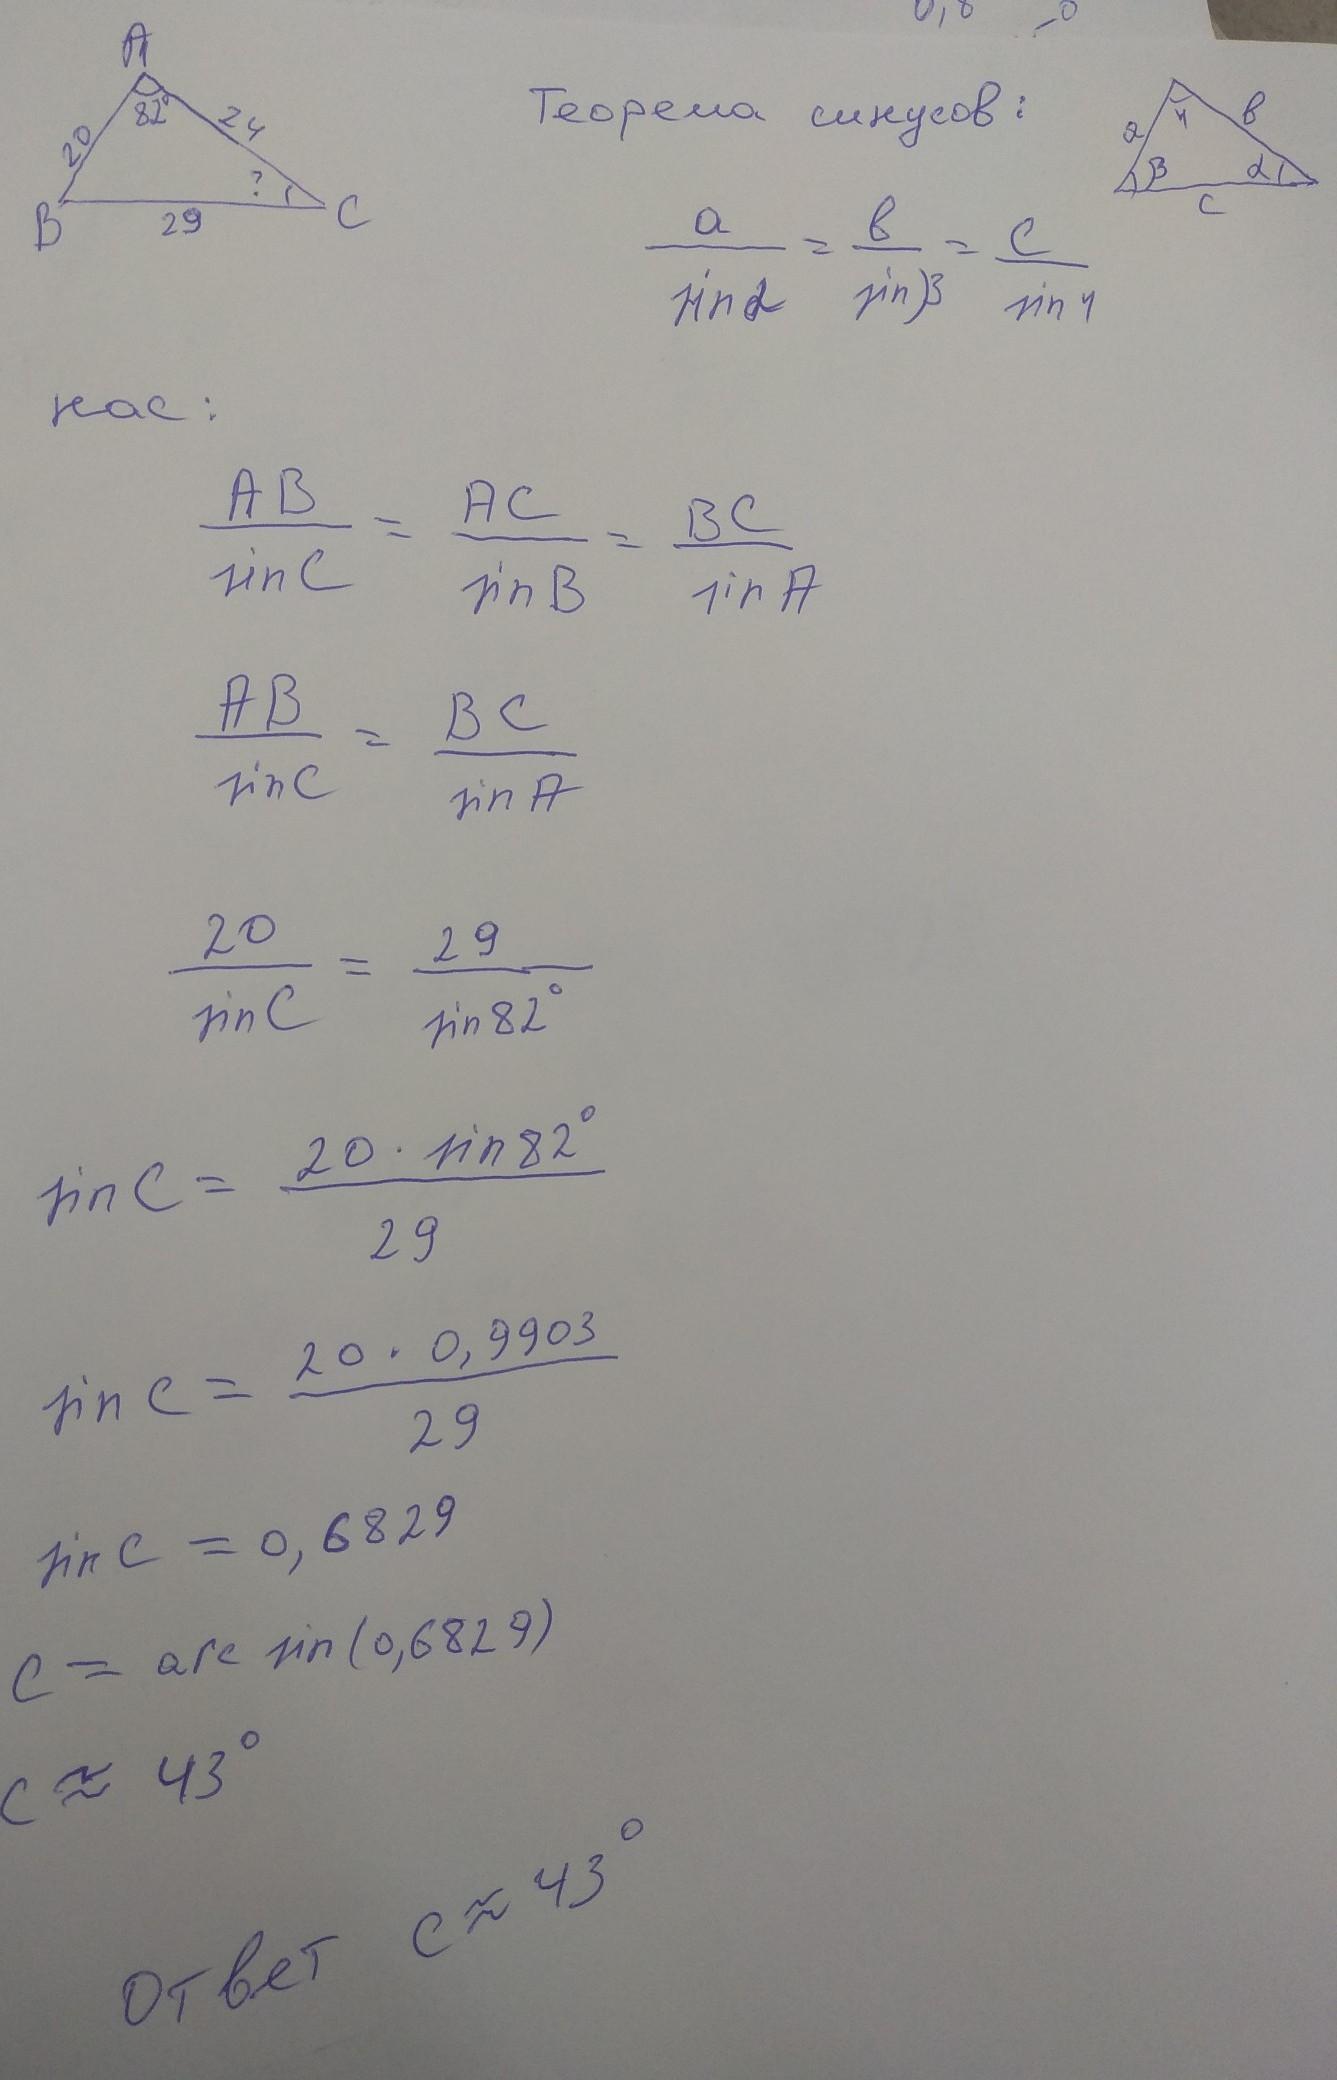 0,8
A
82°
20
24
?
B
29
C
Теорема синусов:
a
в
ч
β
α
c
a/sinα = в/sinβ = c/sinч
нас:
AB/sinC = AC/sinB = BC/sinA
AB/sinC = BC/sinA
20/sinC = 29/sin82°
sinC = 20 · sin82°/29
sinC = 20 · 0,9903/29
sinC = 0,6829
C = arc sin(0,6829)
C ≈ 43°
Ответ C ≈ 43°